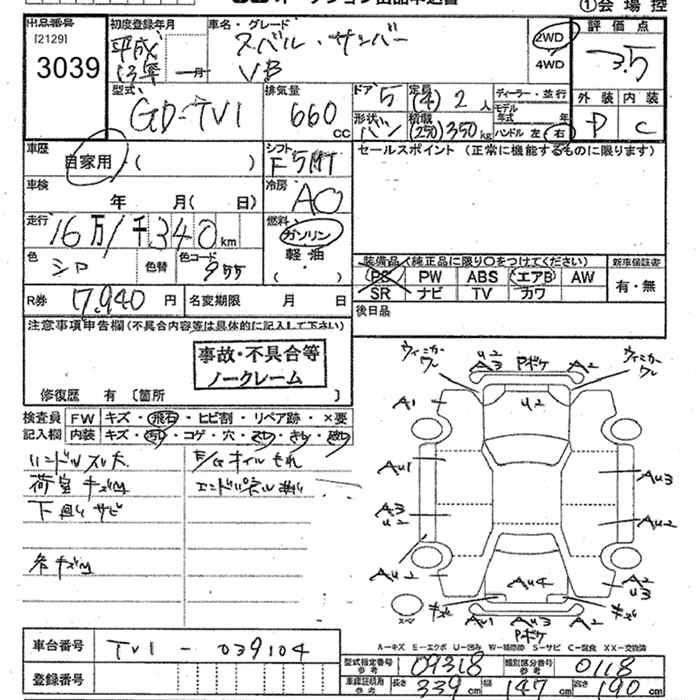 ①会場控
出品番号
[2129]
3039
初度登録年月
平成
13年 一月
車名・グレード
スバル・サンバー
VB
2WD
4WD
評価点
3.5
外装 内装
D C
型式
GD-TV1
排気量
660 cc
ドア 5
定員 (4) 2 人
形状 バン
積載 (250) 350 kg
ディーラー・並行
モデル年式 年
ハンドル 左 右
車歴
自家用・( )
シフト
F5MT
セールスポイント(正常に機能するものに限ります)
車検
年 月( 日)
冷房
AC
走行
16万1千340km
燃料
ガソリン
軽油
・
( )
色
シロ
色替
色コード
955
装備品(純正品に限り○をつけてください)
新車保証書
PS PW ABS エアB AW
SR ナビ TV カワ
有・無
R券 17.940円
名変期限 月 日
後日品
注意事項申告欄(不具合内容等は具体的に記入して下さい)
事故・不具合等
ノークレーム
修復歴 有〔箇所 〕
検査員 FW キズ・飛石・ヒビ割・リペア跡・×要
記入欄 内装 キズ・汚れ・コゲ・穴・
ハンドルスレ大
荷室キズ凹
下廻サビ
F/Gオイルモレ
エンドパネル
各キズ凹
ウィンカー
ワレ
U2
A3
Pボケ
A2
ウィンカー
ワレ
A1
U2
AU1
AU3
A3
U2
AU2
AU2
AU4
A2
U3
キズ
キズ
スペ
AU1
AU3
A2
Pボケ
A-キズ E-エクボ U-凹み W-補修跡 S-サビ C-腐食 XX-交換済
車台番号 TV1 - 039104
登録番号
型式指定番号 参考 09318
類別区分番号 参考 0118
車検証積用 参考 長さ 339cm 幅 147cm 高さ 190cm